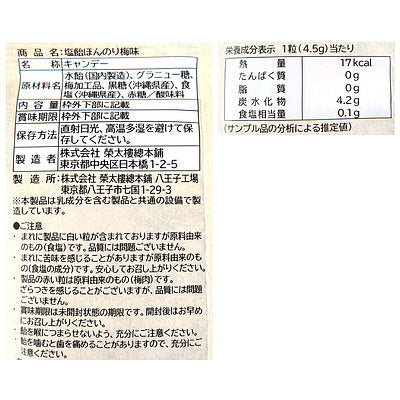 商品名:塩飴ほんのり梅味
名称 キャンデー
原材料名 水飴(国内製造)、グラニュー糖、
梅加工品、黒糖(沖縄県産)、食
塩(沖縄県産)、赤糖/酸味料
内容量 枠外下部に記載
賞味期限 枠外下部に記載
保存方法 直射日光、高温多湿を避けて保
存してください。
製造者 株式会社 榮太樓總本鋪
東京都中央区日本橋1-2-5
製造所:株式会社 榮太樓總本鋪 八王子工場
東京都八王子市七国1-29-3
※本製品は乳成分を含む製品と共通の設備で製
造しています。
●ご注意
・まれに製品に白い粒が含まれておりますが原料由来
のもの(食塩)です。品質には問題ございません。
・まれに苦味を感じることがありますが原料由来のも
の(食塩の成分)です。安心してお召し上がりください。
・製品の赤い粒は原料由来のもの(梅肉)です。
ざらつきを感じることがございますが、品質には問題
ございません。
・賞味期限は未開封状態の期限です。開封後はお早
めにお召し上がりください。
・飴を喉につまらせないよう、充分にご注意ください。
・飴を噛むと歯を痛めることがありますので、充分に
ご注意ください。
栄養成分表示 1粒(4.5g)当たり
熱量 17kcal
たんぱく質 0g
脂質 0g
炭水化物 4.2g
食塩相当量 0.1g
(サンプル品の分析による推定値)